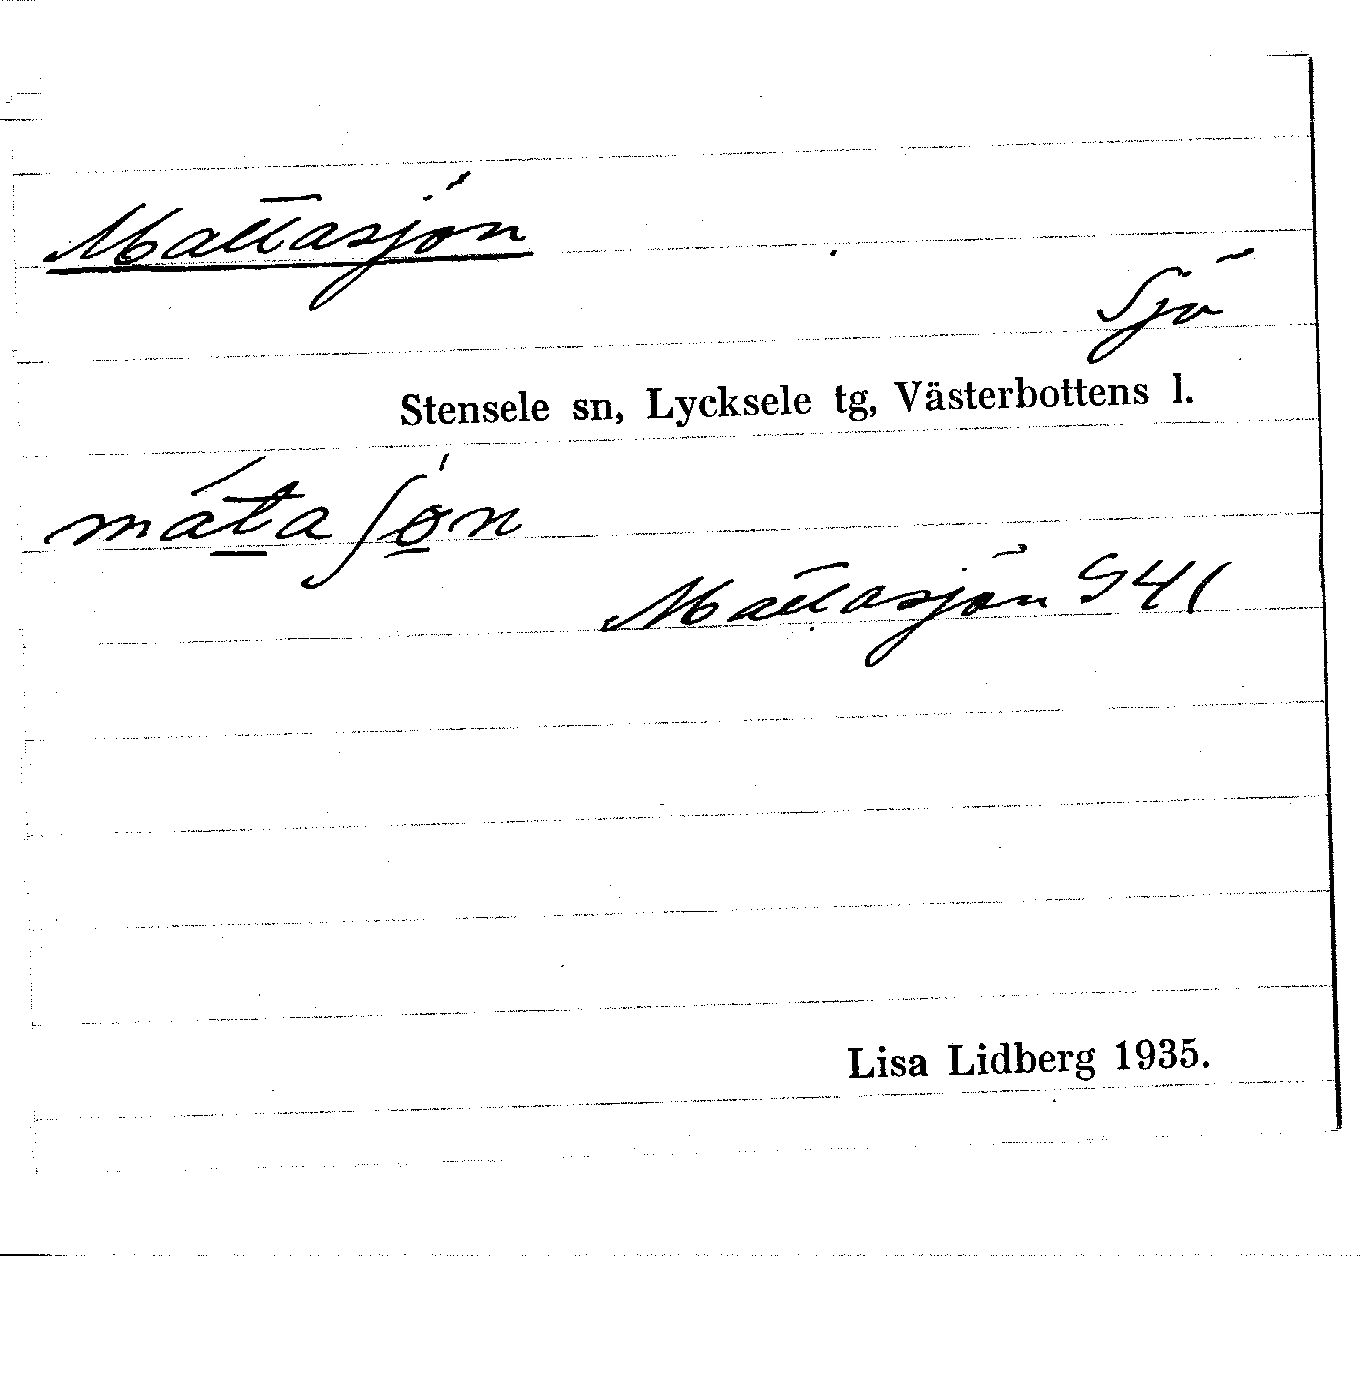 Mattasjön
Sjö
Stensele sn, Lycksele tg, Västerbottens l.
máta ʃö́n
Mattasjön S41
Lisa Lidberg 1935.